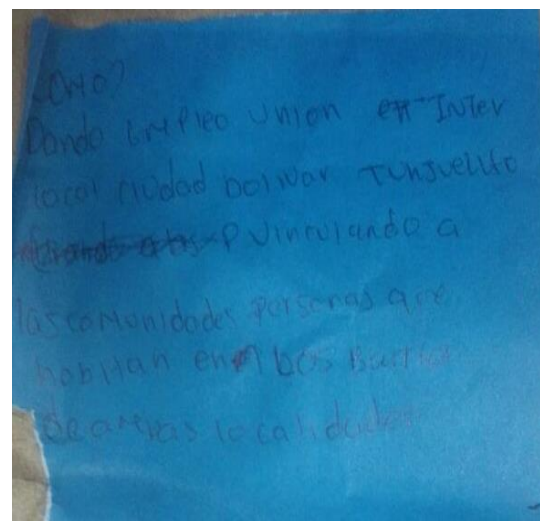 como?
Dando empleo union en Inter
local ciudad bolivar Tunjuelito
vinculando a
las comunidades personas que
habitan en los Barrios
de ambas localidades